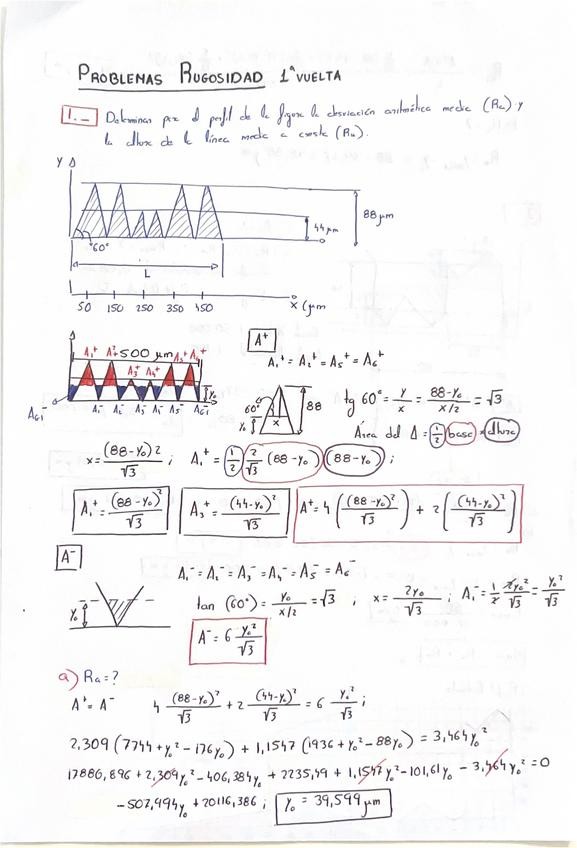 PROBLEMAS RUGOSIDAD 1ª VUELTA
1.- Determinar por el perfil de la figura la desviación aritmética media (Ra) y
la altura de la línea media a cresta (Ru).
Y
88 μm
44 μm
60°
L
X (μm
50 150 250 350 450
A₁⁺ A₂⁺ 500 μm A₅⁺ A₆⁺
A₃⁺ A₄⁺
Y₀
A₆₁⁻ A₁⁻ A₂⁻ A₃⁻ A₄⁻ A₅⁻ A₆₁⁻
A⁺
A₁⁺ = A₂⁺ = A₅⁺ = A₆⁺
60° Y₀ x 88
tg 60° = y/x = (88-Y₀)/(x/2) = √3
Área del Δ = 1/2 base × altura
x = (88-Y₀)2/√3 ; A₁⁺ = (1/2) (2/√3) (88-Y₀) (88-Y₀) ;
A₁⁺ = (88-Y₀)²/√3
A₃⁺ = (44-Y₀)²/√3
A⁺ = 4 ((88-Y₀)²/√3) + 2 ((44-Y₀)²/√3)
A⁻
A₁⁻ = A₂⁻ = A₃⁻ = A₄⁻ = A₅⁻ = A₆⁻
Y₀
tan (60°) = Y₀/(x/2) = √3 ; x = 2Y₀/√3 ; A₁⁻ = 1/2 2Y₀²/√3 = Y₀²/√3
A⁻ = 6 Y₀²/√3
a) Ra = ?
A⁺ = A⁻ 4 (88-Y₀)²/√3 + 2 (44-Y₀)²/√3 = 6 Y₀²/√3 ;
2,309 (7744 + Y₀² - 176Y₀) + 1,1547 (1936 + Y₀² - 88Y₀) = 3,464Y₀²
17886,896 + 2,309Y₀² - 406,384Y₀ + 2235,49 + 1,1547Y₀² - 101,61Y₀ - 3,464Y₀² = 0
-507,994Y₀ + 20116,386 ; Y₀ = 39,599 μm